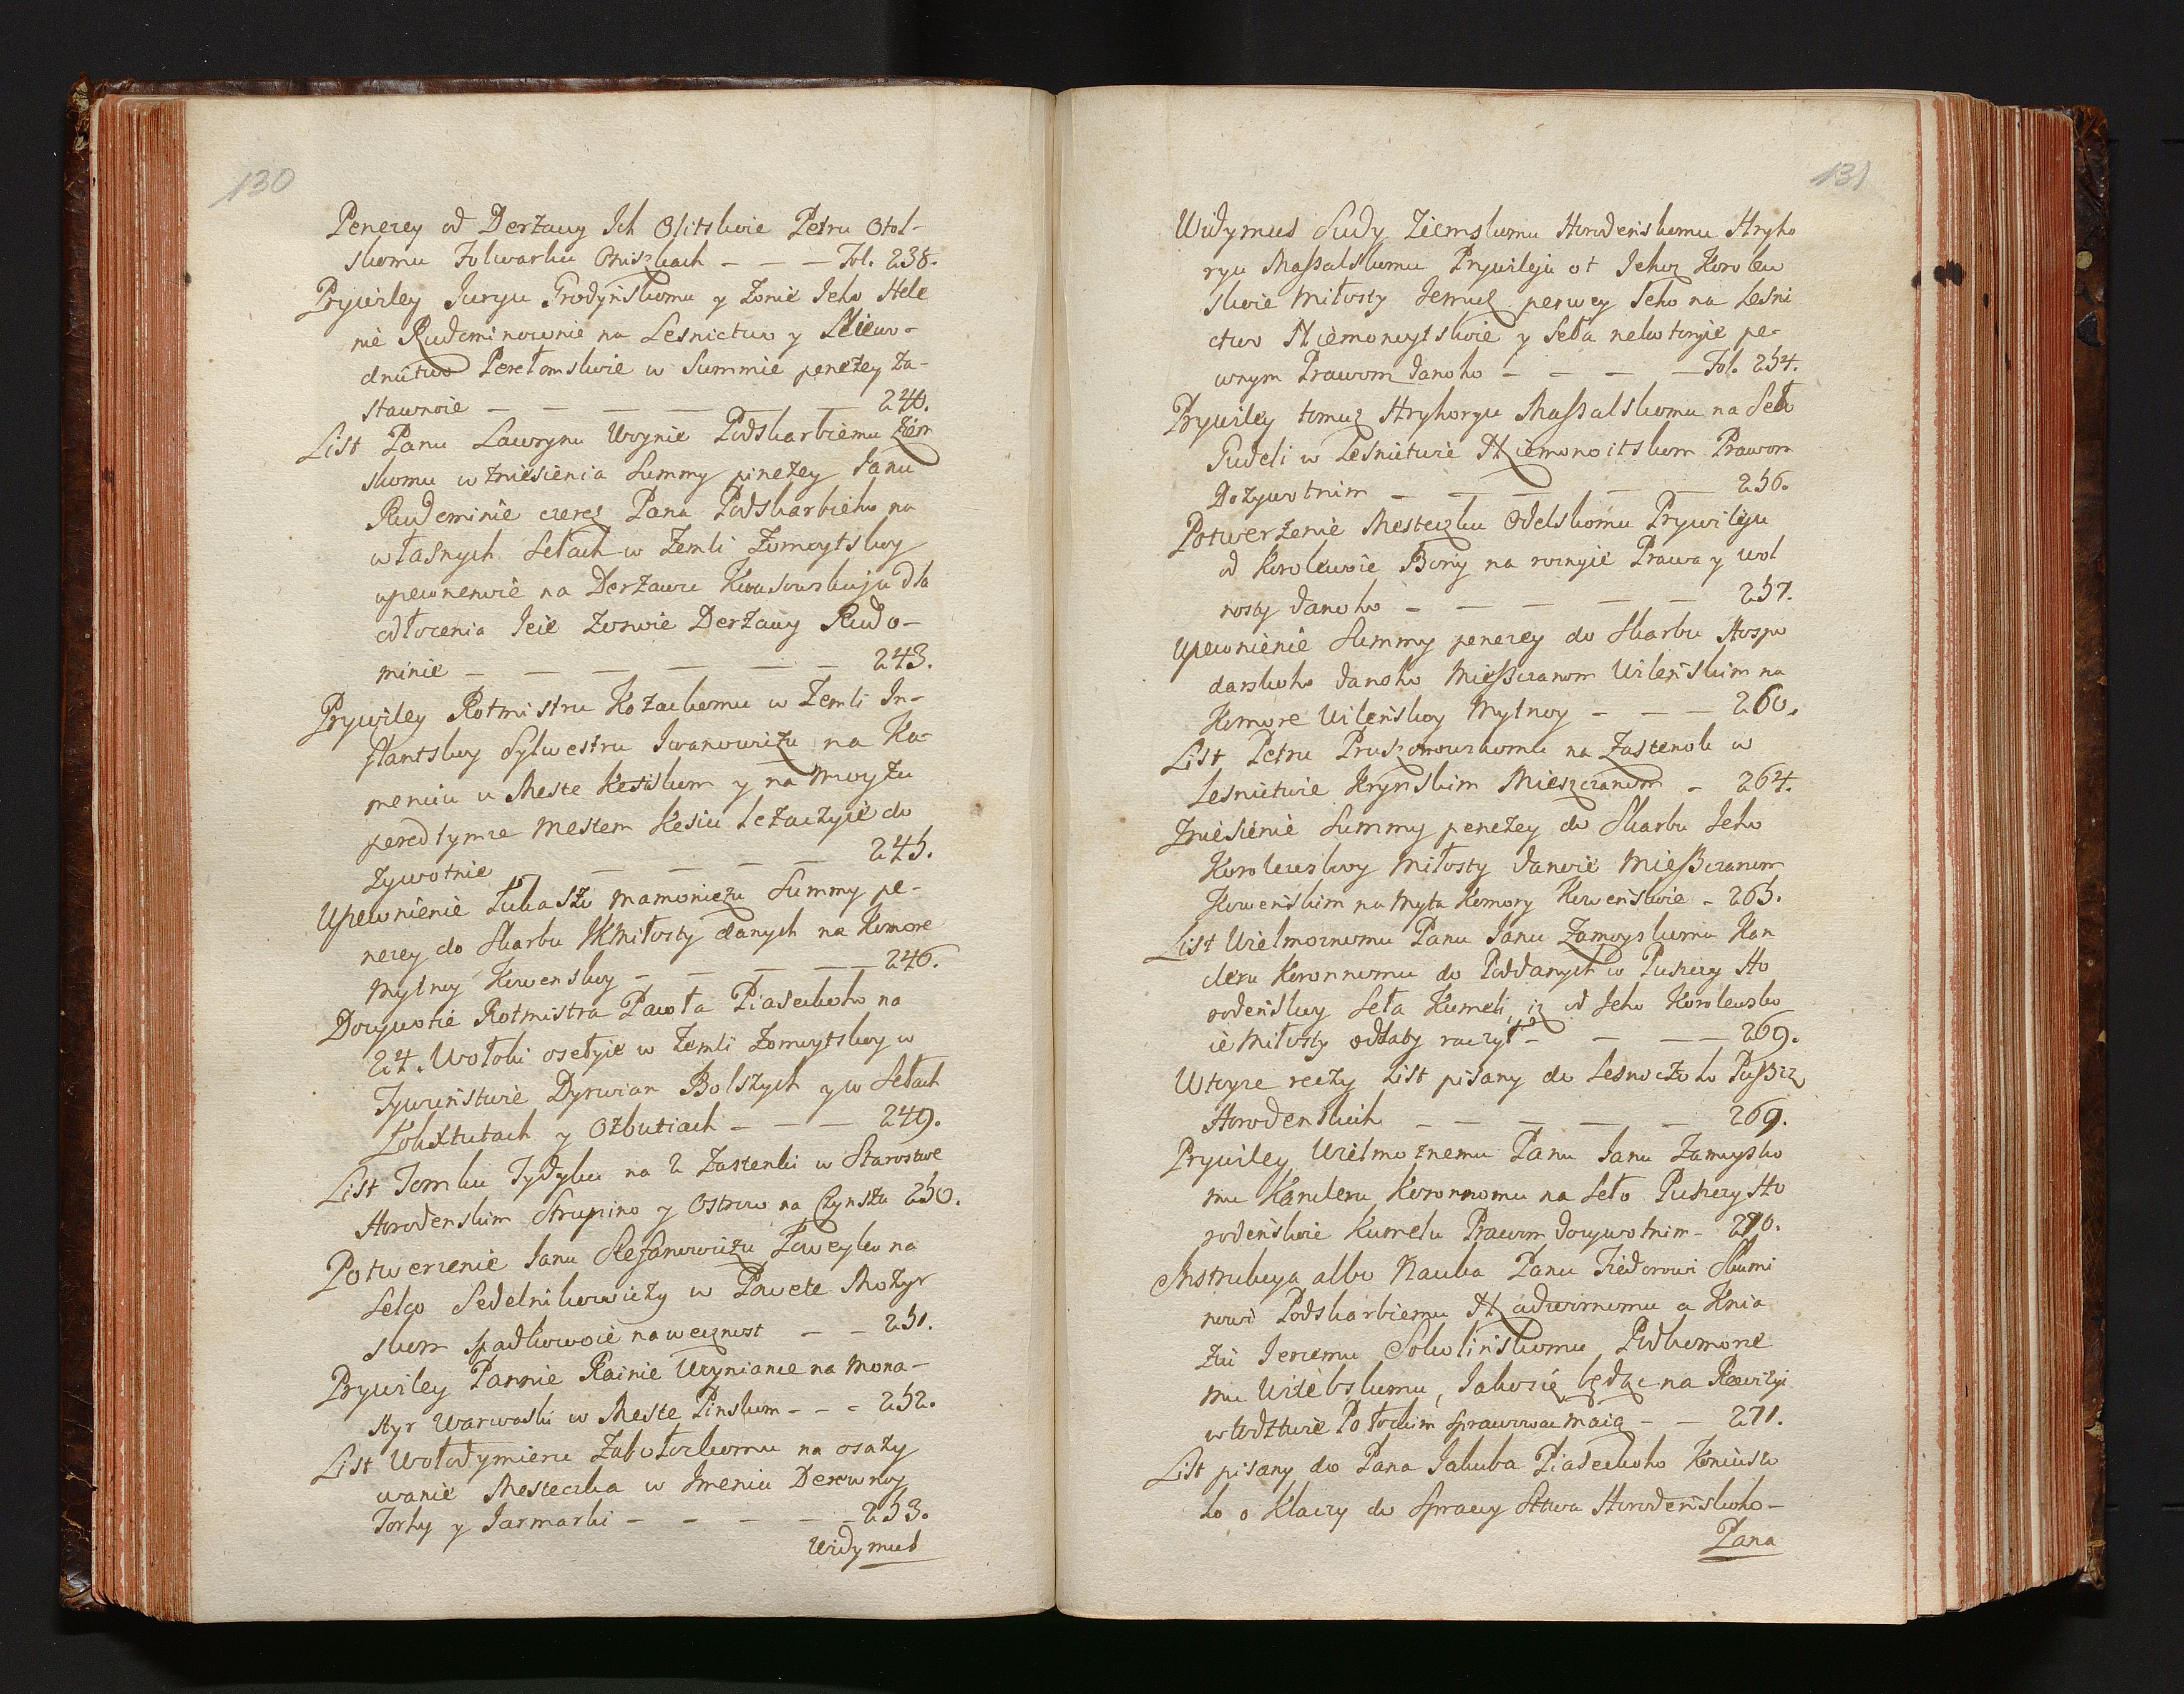 130
Penezey od Derżawy Ich Olitskoie Petru Otol-
skomu Folwarku Oniszkach - - - Fol. 238.
Prywiley Juryu Grodyńskomu y Żonie Jeho Hele
nie Rudominownie na Lesnictwo y
dnictwo Perełomskoie w Summie penezey za-
stawnoie - - - - - 240.
List Panu Lawrynu Woynie Podskarbiemu Ziem
skomu w zniesienia Summy pinezey Janu
Rudominie czerez Pana Podskarbieho na
własnych Sełach w Zemli Żomoytskoy
upewnenoie na Derżawu Kwasowskuju dla
odłożenia Jeie Derżawy Rudo-
minie - - - - - 243.
Prywiley Rotmistru Kozackomu w Zemli In-
flantskoy Sylwestru Iwanowiczu na Ka-
meniu u Meste Kesiskom y na Moyzu
pered tymze Mestem Kesiu leżaczyie do
żywotnie - - - - 245.
Upewnienie Łukaszo Mamoniczu Summy pe-
nezey do Skarbu JKMiłosty danych na Komore
Mytnoy Kowenskoy - - - - 246.
Dożywotie Rotmistra Pawła Piaseckoho na
24. Wołoki osełyie w Zemli Żomoytskoy w
Tywuństwie Dyrwian Bolszych y w Sełach
Łoksztutach y Ozbutiach - - - 249.
List Tomku Tydyku na 2 Zastenki w Starostwe
Horodenskim Strupino y Ostrow na Czynszu 250.
Potwerzenie Janu Stefanowiczu Łoweyko na
Selco Sedelnikowiczy w Powete Mozyr
skom spadkowoie na wecznost - - 251.
Prywiley Pannie Rainie Woynianie na Mona-
styr Warwaski w Meste Pinskom - - - 252.
List Wołodymieru Zabołockomu na osazy
wanie Mesteczka w Imeniu Derewnoy
Torhy y Jarmarki - - - - - 253.
Widymus
131
Widymus Sudy Ziemskomu Horodeńskomu Hryho
ryu Massalskomu Prywileju ot Jehoz Korolew
skoie Miłosty Jemuz perwey seho na Leśni
ctwo Niemonoytskoie y Seła nekotoryie pe-
wnym Prawom danoho - - - - Fol. 254.
Prywiley tomuz Hryhoryu Massalskomu na Seło
Gudeli w Lesnictwie Niemonoitskom Prawom
Dożywotnim - - - - - 256.
Potwerżenie Mesteczku Odelskomu Prywileju
od Korolewoie Bony na roznyie Prawa y wol
nosty danoho - - - - - 257.
Upewnienie Summy penezey do Skarbu Hospo
darskoho danoho Miesszczanom Wilenskim na
Komore Wileńskoy Mytnoy - - - 260.
List Petru Pruszonowskomu na Zastenok w
Lesnictwie Krynskim Mieszczanom - 264.
Zniesienie Summy penezey do Skarbu Jeho
Korolewskoy Miłosty danoie Miesszczanom
Kowenskim na Myta Komory Kowenskoie - 265.
List Wielmoznomu Panu Janu Zamoyskomu Kan
cleru Koronnomu do Poddanych w Puszczy Ho
rodeńskoy Seła Kumeli, iz od Jeho Korolewsko
ie Miłosty oddaty raczył - - - - 269.
W toyze reczy List pisany do Lesniczoho Pusszcz
Horodenskich - - - - - 269.
Prywiley Wielmożnemu Panu Janu Zamoysko
mu Kancleru Koronnomu na Seło Puszczy Ho
rodeńskoie Kumelu Prawom dożywotnim - 270.
Instrukcya albo Nauka Panu Fiedorowi Skumi
nowi Podskarbiemu Nadwornomu a Knia
ziu Jeremu Sokolińskomu Podkomorze
mu Witebskomu, Jako się będąc na Rewizyi
w Wodztwie Połockim sprawować maią - - 271.
List pisany do Pana Jakuba Piaseckoho Koniusko
ho o Klaczy do Sprawy Stwa Horodeńskoho -
Pana